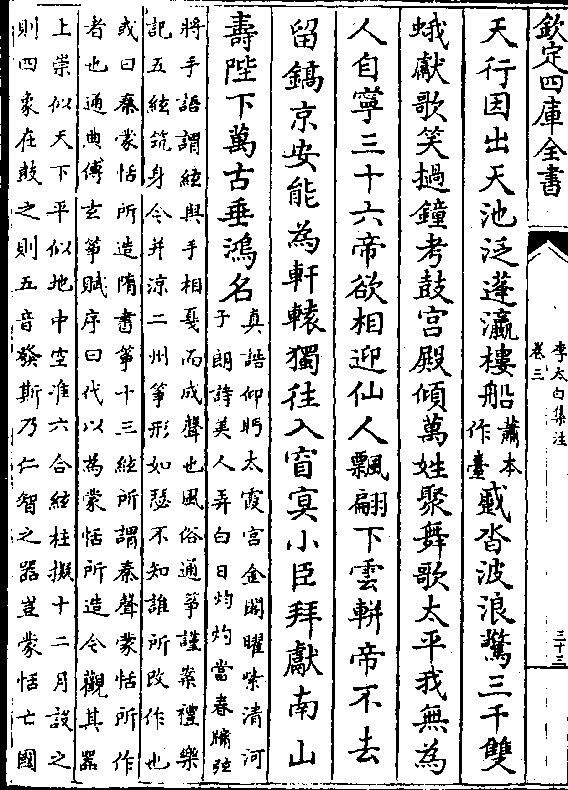 欽定四庫全書
李太白集注
卷三
三十三
天行因出天池泛蓬瀛樓船蕭本作臺蹙沓波浪驚三千雙
蛾獻歌笑撾鐘考鼓宮殿傾萬姓聚舞歌太平我無為
人自寧三十六帝欲相迎仙人飄翩下雲軿帝不去
留鎬京安能為軒轅獨往入窅冥小臣拜獻南山
壽陛下萬古垂鴻名真誥仰眄太霞宮金閣曜紫清河
子朗詩美人弄白日灼灼當春牖弦
將手語謂絃與手相戛而成聲也風俗通箏謹案禮樂
記五絃筑身今并涼二州箏形如瑟不知誰所改作也
或曰秦蒙恬所造隋書箏十三絃所謂秦聲蒙恬所作
者也通典傅玄箏賦序曰代以為蒙恬所造今觀其器
上崇似天下平似地中空准六合絃柱擬十二月設之
則四象在鼓之則五音發斯乃仁智之器豈蒙恬亡國